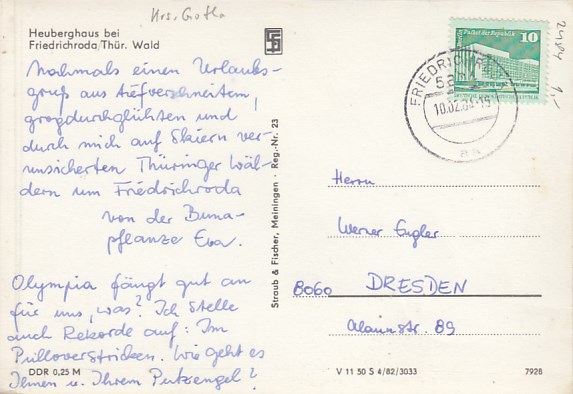 Krs. Gotha
Heuberghaus bei
Friedrichroda/Thür. Wald
Nochmals einen Urlaubs-
gruß aus tiefverschneiten,
grogdurchglühten und
durch mich auf Skiern ver-
unsicherten Thüringer Wäl-
dern um Friedrichroda
von der Buna-
pflanze Eva.
Olympia fängt gut an
für uns, was? Ich stelle
auch Rekorde auf: Im
Pulloverstricken. Wie geht es
Ihnen u. Ihrem Putzengel?
DDR 0,25 M
Straub & Fischer, Meiningen · Reg.-Nr. 23
Palast der Republik
10
FRIEDRICHRODA
10.02.84-19
Herrn
Werner Engler
8060 DRESDEN
Alaunstr. 89
V 11 50 S 4/82/3033
7928